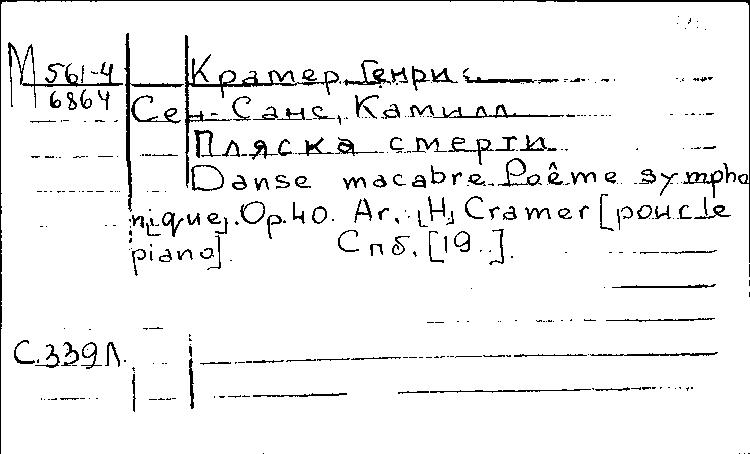 М 561-4 Крамер, Генри с.
6864 Сен-Санс, Камилл
Пляска смерти
Danse macabre. Poême sympho
n[ique]. Op. 40. Ar. [H] Cramer [pour le
piano]. Спб. [19..].
С.339л.